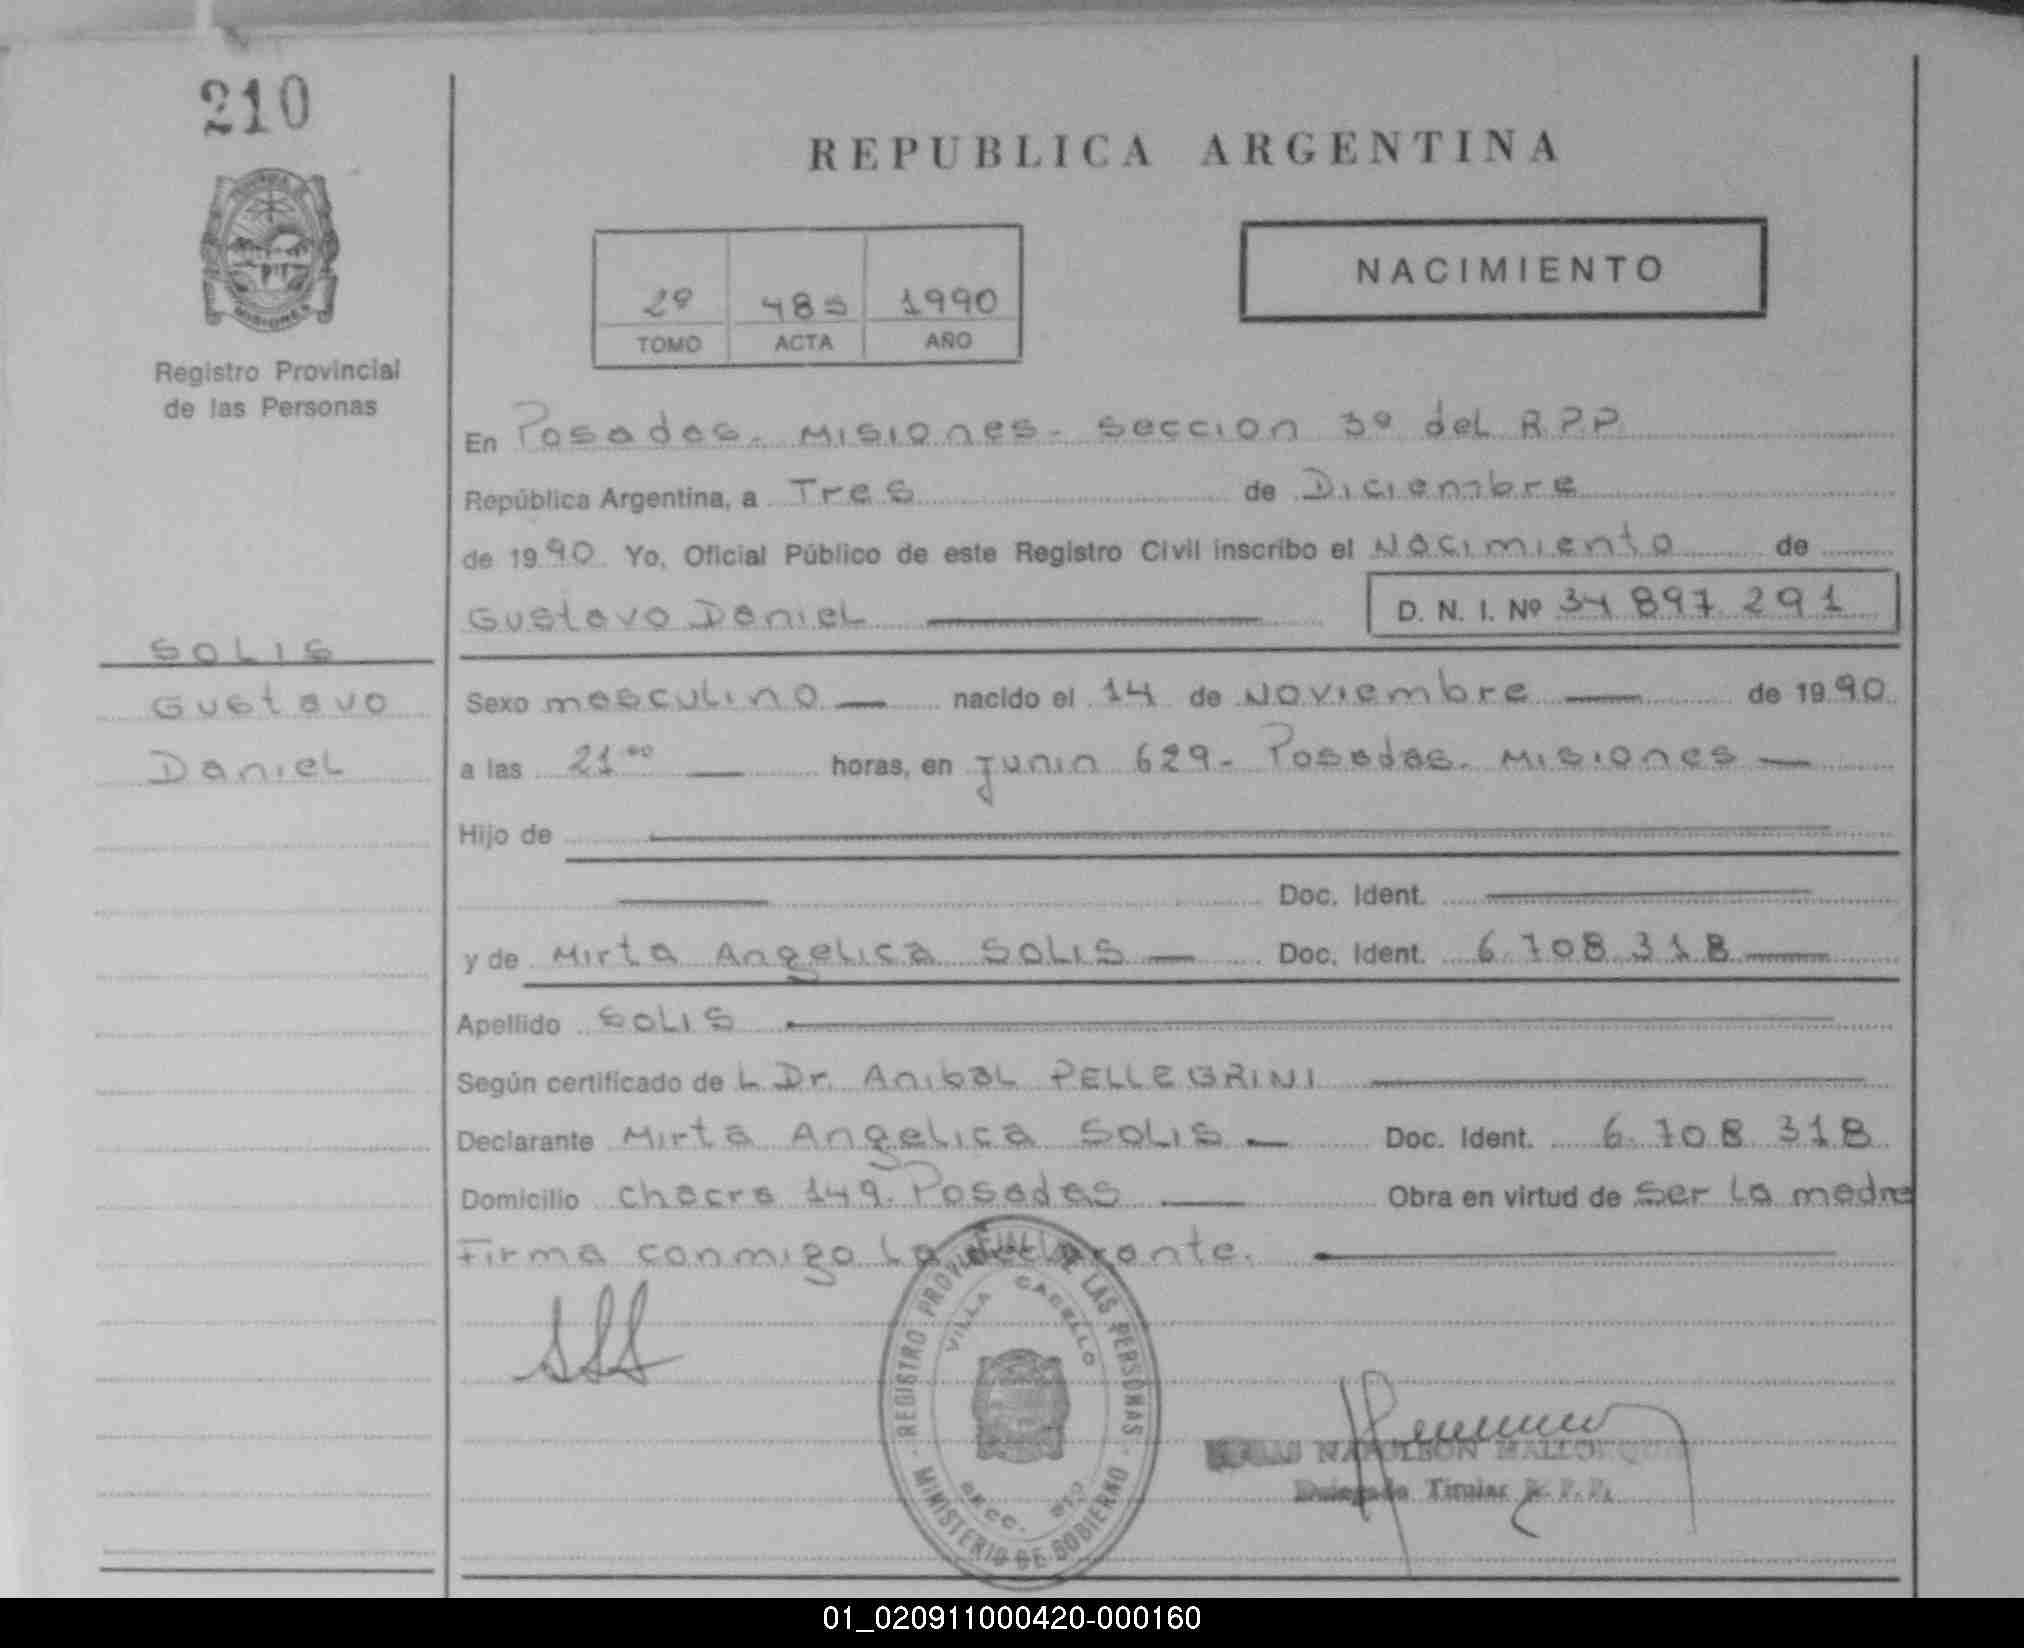 210
REPUBLICA ARGENTINA
MISIONES
Registro Provincial
de las Personas
2º 485 1990
TOMO ACTA AÑO
NACIMIENTO
En Posadas. Misiones. Seccion 3º del R.P.P.
República Argentina, a Tres de Diciembre
de 1990 Yo, Oficial Público de este Registro Civil inscribo el Nacimiento de
Gustavo Daniel D. N. I. Nº 34 897 291
SOLIS
Gustavo
Daniel
Sexo masculino nacido el 14 de Noviembre de 1990
a las 21 00 horas, en Junin 629. Posadas. Misiones
Hijo de
Doc. Ident.
y de Mirta Angelica SOLIS Doc. Ident. 6.708.318
Apellido SOLIS
Según certificado de L Dr. Anibal PELLEGRINI
Declarante Mirta Angelica SOLIS Doc. Ident. 6.708.318
Domicilio chacra 149. Posadas Obra en virtud de ser la madre
Firma conmigo la declarante.
REGISTRO PROVINCIAL DE LAS PERSONAS
VILLA CABELLO
SECC. 3ra
MINISTERIO DE GOBIERNO
NAPOLEON
Delegado Titular R. P. P.
01_020911000420-000160